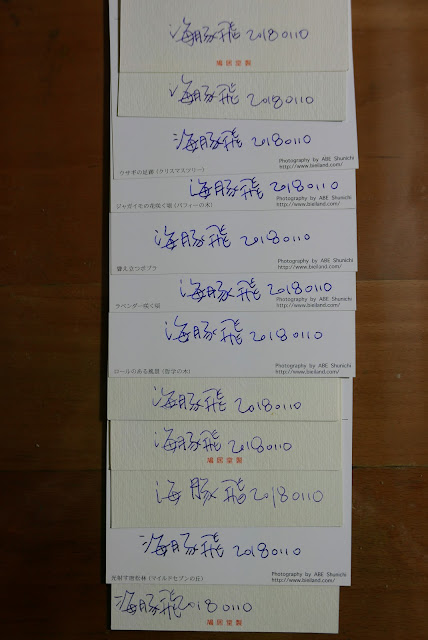 海豚飛 20180110
鳩居堂製
海豚飛 20180110
海豚飛 20180110
Photography by ABE Shunichi
ウサギの足跡(クリスマスツリー)
http://www.bieiland.com/
海豚飛 20180110
Photography by ABE Shunichi
ジャガイモの花咲く頃(パフィーの木)
http://www.bieiland.com/
海豚飛 20180110
Photography by ABE Shunichi
聳え立つポプラ
http://www.bieiland.com/
海豚飛 20180110
Photography by ABE Shunichi
ラベンダー咲く頃
http://www.bieiland.com/
海豚飛 20180110
Photography by ABE Shunichi
ロールのある風景(哲学の木)
http://www.bieiland.com/
海豚飛 20180110
海豚飛 20180110
鳩居堂製
海豚飛 20180110
海豚飛 20180110
Photography by ABE Shunichi
光射す唐松林(マイルドセブンの丘)
http://www.bieiland.com/
海豚飛 20180110
鳩居堂製